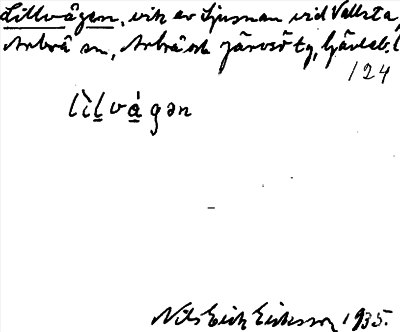 Lillvågen, vik av Ljusnan vid Vallsta,
Arbrå sn, Arbrå och Järvsö tg, Gävleb. l
124
lìlvágən
Nils Erik Eriksson 1935.